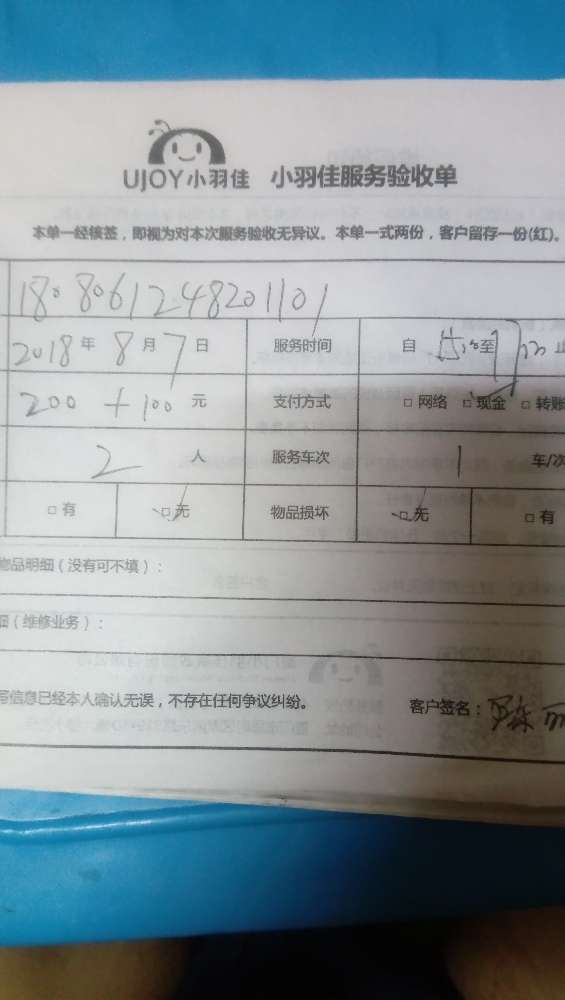 UJOY小羽佳 小羽佳服务验收单
本单一经核签，即视为对本次服务验收无异议。本单一式两份，客户留存一份(红)。
1808061248201101
2018年8月7日 服务时间 自 至 止
200+100元 支付方式 □网络 □现金 □转账
2人 服务车次 1车/次
□有 □无 物品损坏 □无 □有
物品明细（没有可不填）：
细（维修业务）：
写信息已经本人确认无误，不存在任何争议纠纷。 客户签名：